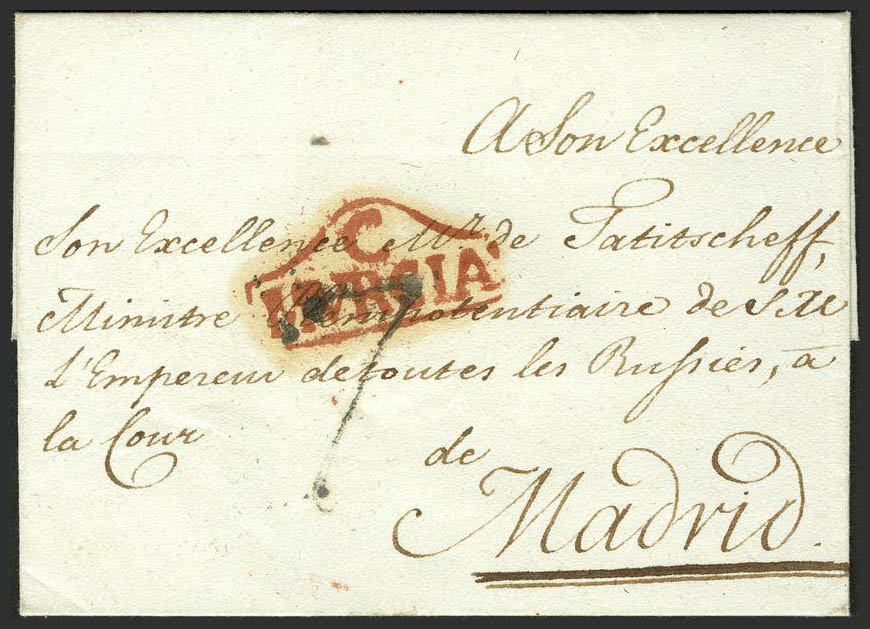 A Son Excellence
Son Excellence Mr de Tatitscheff,
Ministre Plenipotentiaire de S. M
l'Empereur de toutes les Russies, à
la Cour
de
Madrid.
C
MURCIA
7